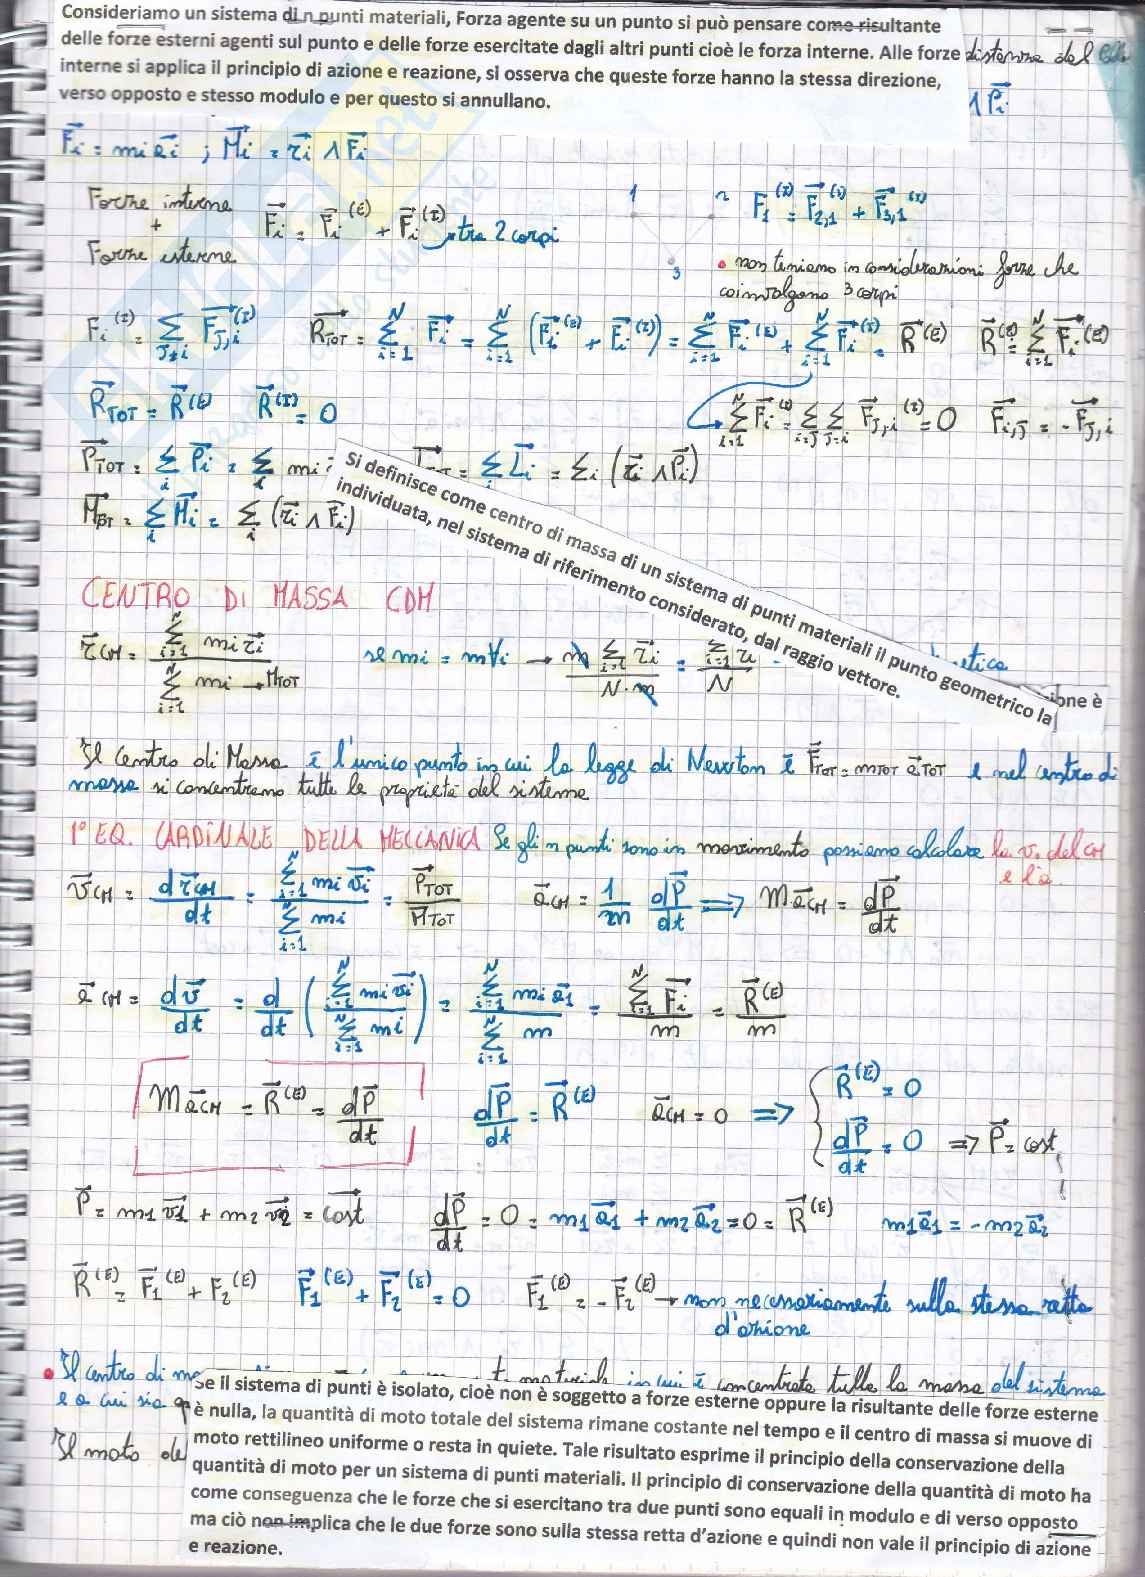 Consideriamo un sistema di n punti materiali, Forza agente su un punto si può pensare come risultante
delle forze esterni agenti sul punto e delle forze esercitate dagli altri punti cioè le forza interne. Alle forze distema del
interne si applica il principio di azione e reazione, si osserva che queste forze hanno la stessa direzione,
verso opposto e stesso modulo e per questo si annullano. ∧ P⃗i
F⃗i = mi a⃗i ; M⃗i = r⃗i ∧ F⃗i
Forze interne + Forze esterne F⃗i = F⃗i^(E) + F⃗i^(I) tra 2 corpi
1 2 3 F1^(I) = F⃗2,1^(I) + F⃗3,1^(I)
• non teniamo in considerazioni forze che
coinvolgono 3 corpi
Fi^(I) = Σ_{J≠i} F⃗J,i^(I) R⃗TOT = Σ_{i=1}^N F⃗i = Σ_{i=1}^N (F⃗i^(E) + F⃗i^(I)) = Σ_{i=1}^N F⃗i^(E) + Σ_{i=1}^N F⃗i^(I) = R⃗^(E) R⃗^(E) = Σ_{i=1}^N F⃗i^(E)
R⃗TOT = R⃗^(E) R⃗^(I) = 0 Σ_{i=1}^N F⃗i^(I) = Σ_{i=J} Σ_{J=i} F⃗J,i^(I) = 0 F⃗i,J = -F⃗J,i
P⃗TOT = Σ_i P⃗i = Σ_i mi = Σ_i L⃗i = Σi (r⃗i ∧ P⃗i)
M⃗TOT = Σ_i M⃗i = Σ_i (r⃗i ∧ F⃗i)
Si definisce come centro di massa di un sistema di punti materiali il punto geometrico la
individuata, nel sistema di riferimento considerato, dal raggio vettore.
CENTRO DI MASSA CDM
r⃗CM = Σ_{i=1}^N mi r⃗i / Σ_{i=1}^N mi → MTOT se mi = m ∀i → m Σ_{i=1} r⃗i / N·m = Σ_{i=1} ri / N etica
ione è
Il Centro di Massa è l'unico punto in cui la legge di Newton è F⃗TOT = mTOT a⃗TOT e nel centro di
massa si concentrano tutte le proprietà del sistema
1° EQ. CARDINALE DELLA MECCANICA Se gli n punti sono in movimento possiamo calcolare la v. del CM
e l'a.
v⃗CM = dr⃗CM/dt = Σ_{i=1}^N mi v⃗i / Σ_{i=1}^N mi = P⃗TOT / MTOT a⃗CM = 1/m dP⃗/dt ⟹ M a⃗CM = dP⃗/dt
a⃗CM = dv⃗/dt = d/dt (Σ_{i=1}^N mi v⃗i / Σ_{i=1}^N mi) = Σ_{i=1}^N mi a⃗1 / Σ_{i=1}^N m = Σ_{i=1}^N F⃗i / m = R⃗^(E) / m
M a⃗CM = R⃗^(E) = dP⃗/dt dP⃗/dt = R⃗^(E) a⃗CM = 0 ⟹ { R⃗^(E) = 0
dP⃗/dt = 0 ⟹ P⃗ = cost
P⃗ = m1 v⃗1 + m2 v⃗2 = cost dP⃗/dt = 0 = m1 a⃗1 + m2 a⃗2 = 0 = R⃗^(E) m1 a⃗1 = -m2 a⃗2
R⃗^(E) = F⃗1^(E) + F2^(E) F⃗1^(E) + F⃗2^(E) = 0 F⃗1^(E) = -F⃗2^(E) → non necessariamente sulla stessa retta
d'azione
• Il centro di in cui è concentrata tutta la massa del sistema
e a cui sia
Il moto del
Se il sistema di punti è isolato, cioè non è soggetto a forze esterne oppure la risultante delle forze esterne
è nulla, la quantità di moto totale del sistema rimane costante nel tempo e il centro di massa si muove di
moto rettilineo uniforme o resta in quiete. Tale risultato esprime il principio della conservazione della
quantità di moto per un sistema di punti materiali. Il principio di conservazione della quantità di moto ha
come conseguenza che le forze che si esercitano tra due punti sono equali in modulo e di verso opposto
ma ciò non implica che le due forze sono sulla stessa retta d'azione e quindi non vale il principio di azione
e reazione.